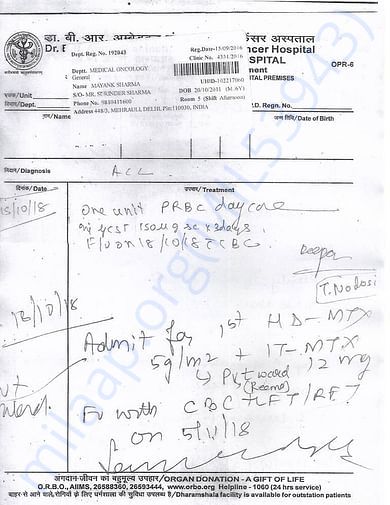 डा. बी. आर.
कैंसर अस्पताल
Dr. B
ncer Hospital
SPITAL
ment
TAL PREMISES
OPR-6
Dept. Reg. No. 192043
Reg.Date-15/09/2016
Clinic No. 4331/2016
Deptt. MEDICAL ONCOLOGY
General
UHID-102217060
Name MAYANK SHARMA
DOB 20/10/2011 (M.6Y)
S/O- MR. SURINDER SHARMA
Room 5 (Shift Afternoon)
Phone No. 9810411600
Address 448/3, MEHRAULI DELHI, Pin:110030, INDIA
एकक/Unit
विभाग/Dept.
P.D. Regn. No.
नाम/Name
जन्म तिथि/Date of Birth
निदान/Diagnosis
ALL
दिनांक/Date
उपचार/Treatment
15/10/18
one unit PRBC daycare
GCSF 150ug sc x 3days
F/U on 18/10/18 c CBC
Deepa
18/10/18
Admit for 1st HD-MTX
5g/m2 + IT-MTX
12 mg
Pvt ward
ward.
FU with CBC+LFT/RFT
on 5/11/18
milaap.org
अंगदान-जीवन का बहुमूल्य उपहार/ORGAN DONATION - A GIFT OF LIFE
O.R.B.O., AIIMS, 26588360, 26593444, www.orbo.org Helpline - 1060 (24 hrs service)
बाहर से आने वाले रोगियों के लिए धर्मशाला की सुविधा उपलब्ध है/Dharamshala facility is available for outstation patients